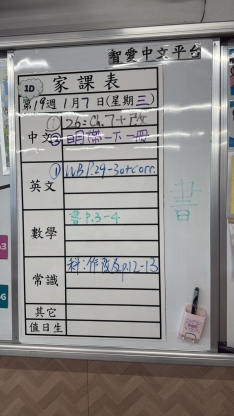 智愛中文平台
1D 家課表
第19週 1月7日(星期三)
中文 ① 2b: Ch.7十改
② 明課一下一冊
英文 ① WB P.29-30+corr.
數學 書 P.3-4
書
常識
其它
值日生